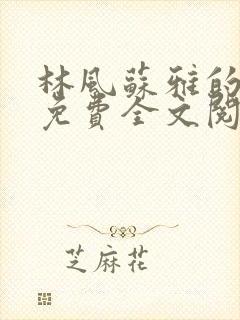 林风蘇雅的
免費全文閱
芝麻花